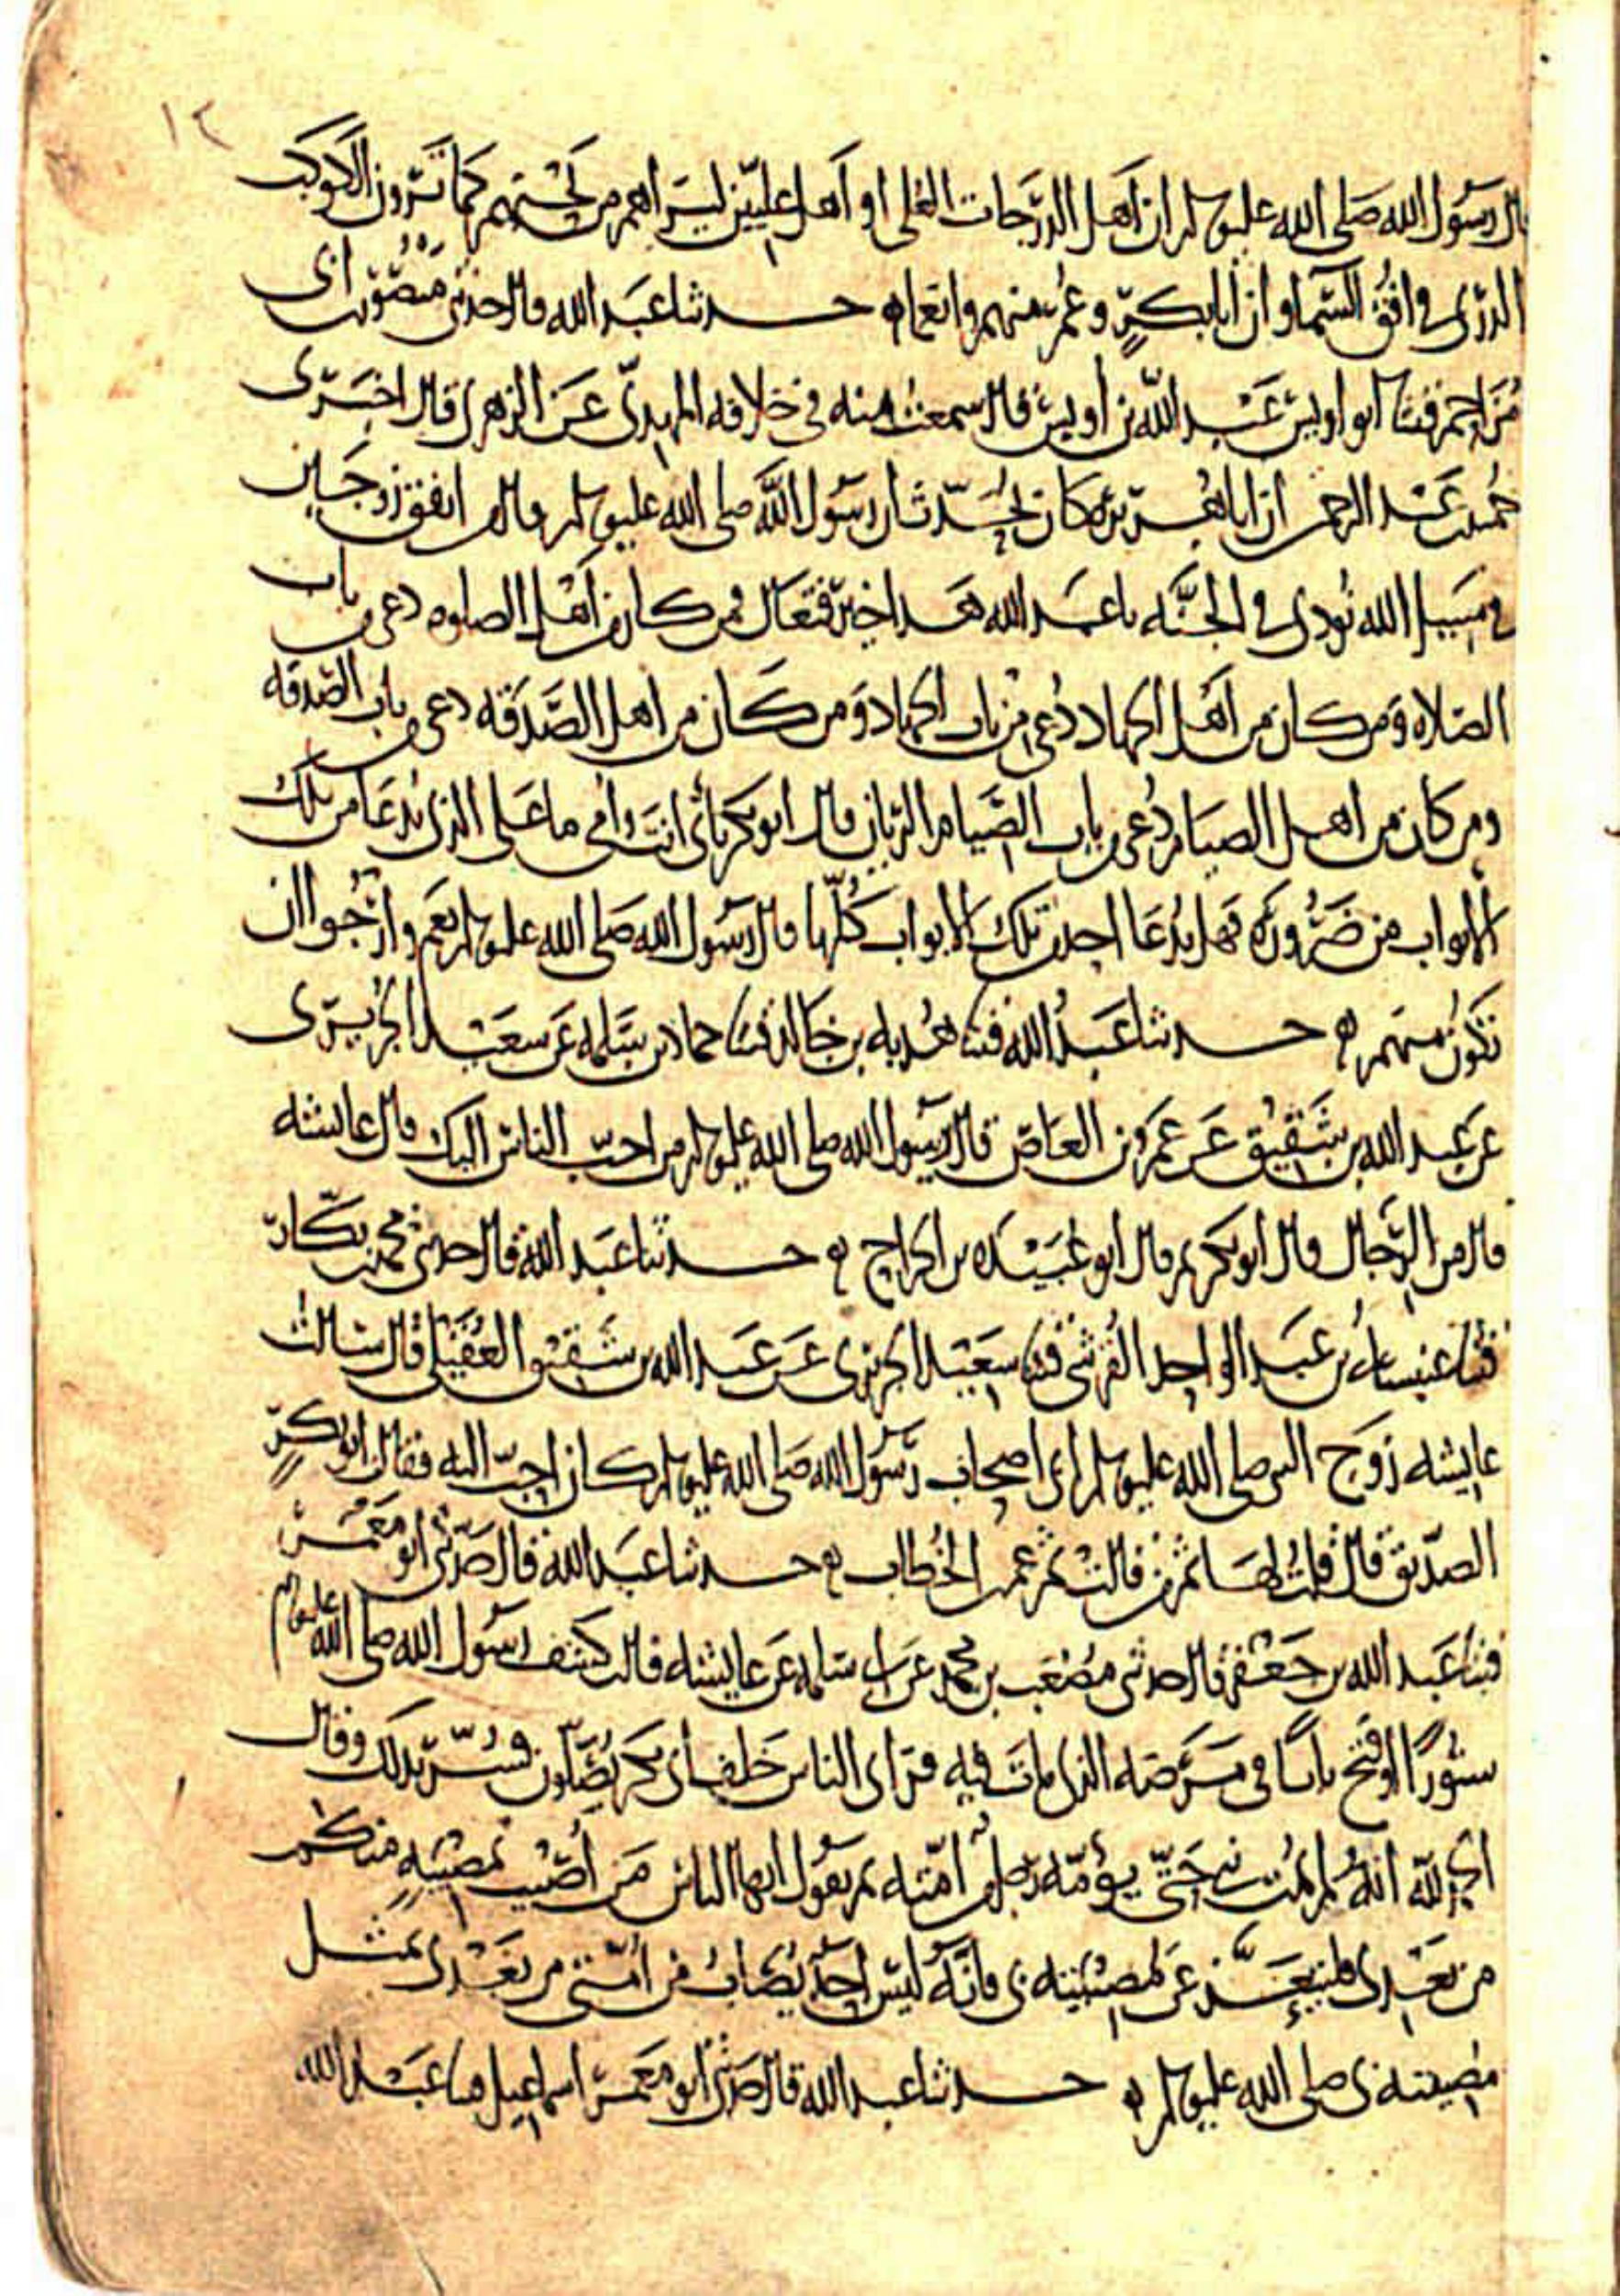 ١٢
قال رسول الله صلى الله عليه وسلم ان اهل الدرجات العلى او اهل عليين ليراهم من تحتهم كما ترون الكوكب
الدري في افق السما وان ابا بكر وعمر منهم وانعما ه حدثنا عبد الله قال حدثني منصور بن ابي
مزاحم قثنا ابو اويس عبد الله بن اويس قال سمعت منه في خلافه المهدي عن الزهري قال اخبرني
حميد بن عبد الرحمن ان ابا هريره كان يحدث ان رسول الله صلى الله عليه وسلم قال من انفق زوجين
في سبيل الله نودي في الجنه يا عبد الله هذا خير فتعال فمن كان من اهل الصلوه دعي من باب
الصلاه ومن كان من اهل الجهاد دعي من باب الجهاد ومن كان من اهل الصدقه دعي من باب الصدقه
ومن كان من اهل الصيام دعي من باب الصيام الريان قال ابو بكر بأبي انت وأمي ما على الذي يدعا من تلك
الابواب من ضروره فهل يدعا احد من تلك الابواب كلها قال رسول الله صلى الله عليه وسلم نعم وارجوا ان
تكون منهم ه حدثنا عبد الله قثنا هدبه بن خالد قثنا حماد بن سلمه عن سعيد الجريري
عن عبد الله بن شقيق عن عمرو بن العاص قال رسول الله صلى الله عليه وسلم من احب الناس اليك قال عايشه
قال من الرجال قال ابو بكر ثم قال ابو عبيده بن الجراح ه حدثنا عبد الله قال حدثني محمد بن بكار
قثنا عنبسه بن عبد الواحد القرشي قثنا سعيد الجريري عن عبد الله بن شقيق العقيلي قال سالت
عايشه زوج النبي صلى الله عليه وسلم اي اصحاب رسول الله صلى الله عليه وسلم كان احب اليه فقالت ابو بكر
الصديق قال قلت لها ثم من قالت ثم عمر بن الخطاب ه حدثنا عبد الله قال حدثني ابو معمر
قثنا عبد الله بن جعفر قال حدثني مصعب بن محمد عن ابي سلمه عن عايشه قالت كشف رسول الله صلى الله عليه وسلم
ستورا او فتح بابا في مرضه الذي مات فيه فراى الناس خلف ابي بكر يصلون فسر بذلك وقال
الحمد لله انه لم يمت نبي حتى يؤمه رجل من امته ثم يقول ايها الناس من اصيب بمصيبه منكم
من بعدي فليتعز عن مصيبته بي فانه ليس احد يصاب من امتي من بعدي بمثل
مصيبته بي صلى الله عليه وسلم ه حدثنا عبد الله قال حدثني ابو معمر اسماعيل قثنا عبد الله